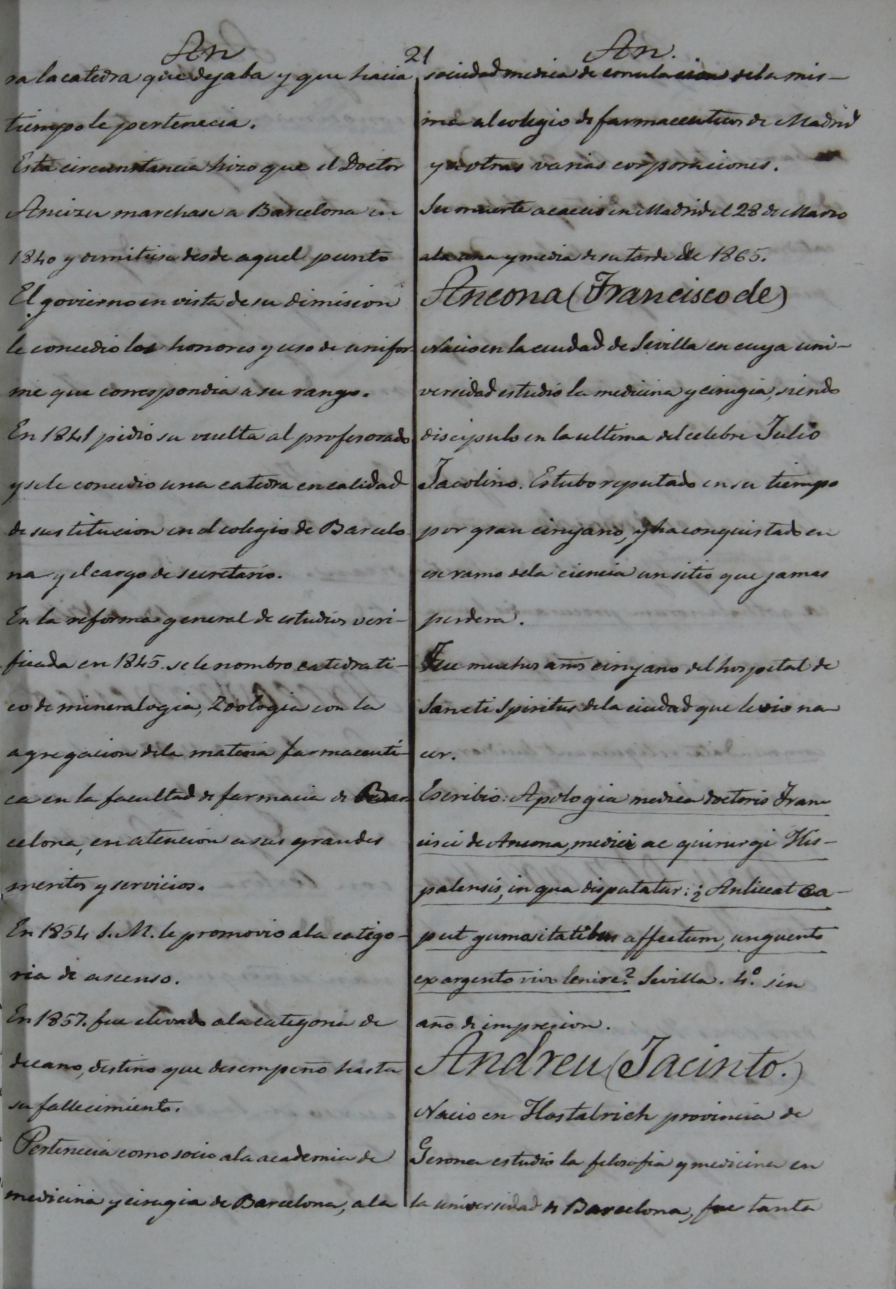 An
21
An.
ra la catedra que dejaba y que hacia
tiempo le pertenecia.
Esta circunstancia hizo que el Doctor
Ancizu marchase a Barcelona en
1840 y dimitiese desde aquel punto
El govierno en vista de su dimision
le concedio los honores y uso de unifor
me que correspondia a su rango.
En 1841 pidio su vuelta al profesorado
y se le concedio una catedra en calidad
de sustitucion en el colegio de Barcelo
na y el cargo de secretario.
En la reforma general de estudios veri-
ficada en 1845. se le nombro catedrati-
co de mineralogia, Zoologia con la
agregacion de la materia farmaceuti-
ca en la facultad de farmacia de Bar
celona, en atencion a sus grandes
meritos y servicios.
En 1854 S. M. le promovio a la catego-
ria de ascenso.
En 1857. fue elevado a la categoria de
decano, destino que desempeño hasta
su fallecimiento.
Pertenecia como socio a la academia de
medicina y cirugia de Barcelona, a la
sociedad medica de emulacion de la mis-
ma al colegio de farmaceuticos de Madrid
y a otras varias corporaciones.
Su muerte acaecio en Madrid el 28 de Marzo
a la una y media de su tarde de 1865.
Ancona (Francisco de)
Nacio en la ciudad de Sevilla en cuya uni-
versidad estudio la medicina y cirugia, siendo
discipulo en la ultima del celebre Julio
Jacolino. Estubo reputado en su tiempo
por gran cirujano, y ha conquistado en
ese ramo de la ciencia un sitio que jamas
perdera.
Fue muchos años cirujano del hospital de
Sancti Spiritus de la ciudad que le vio na
cer.
Escribio: Apologia medica doctoris Fran
cisci de Ancona, medici ac quirurgi His-
palensis, in qua disputatur: ¿ An liceat ca-
put gumositatibus affectum, unguento
ex argento vivo lenire? Sevilla. 4.º sin
año de impresion.
Andreu (Jacinto.)
Nacio en Hostalrich provincia de
Gerona estudio la filosofia y medicina en
la universidad de Barcelona, fue tanta